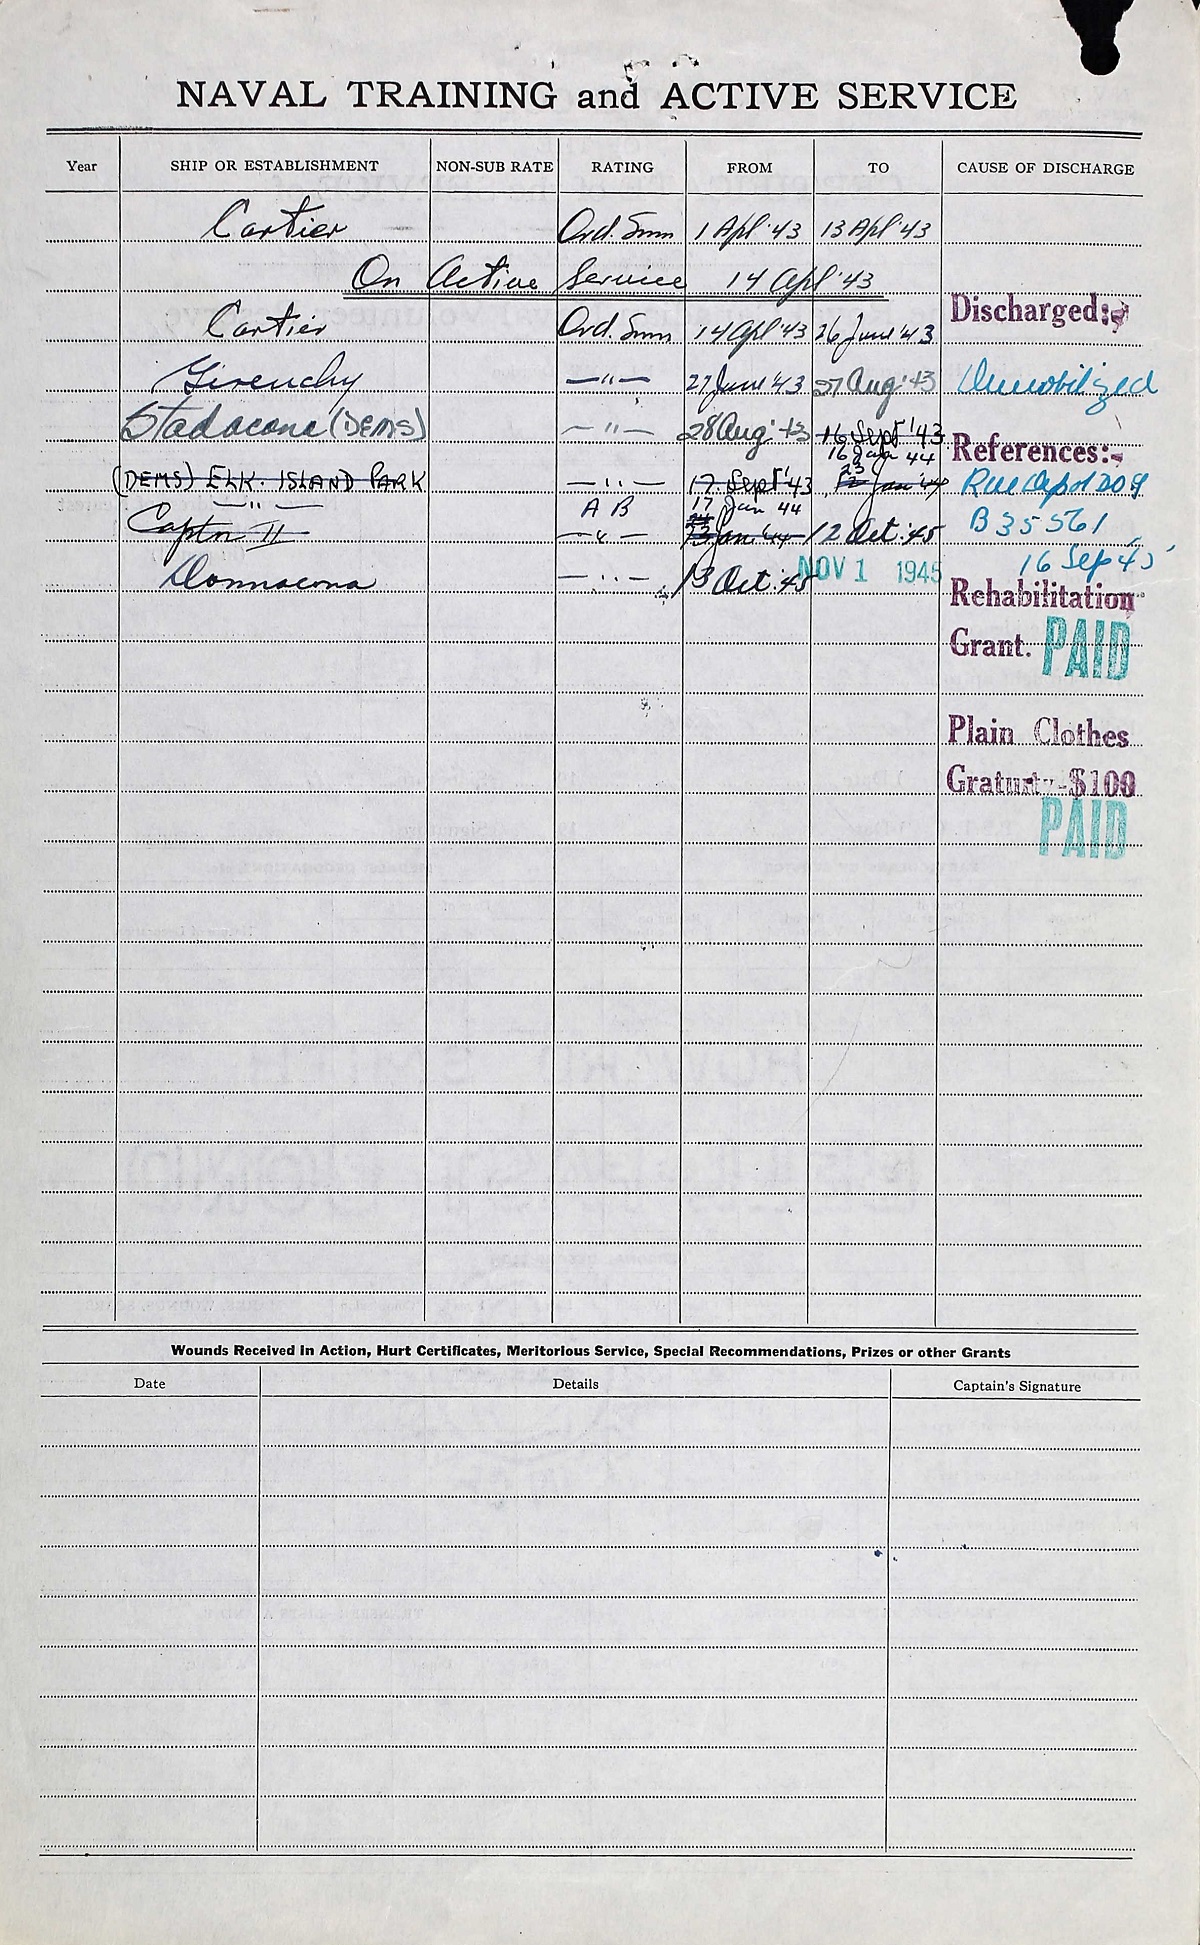 NAVAL TRAINING and ACTIVE SERVICE
Year SHIP OR ESTABLISHMENT NON-SUB RATE RATING FROM TO CAUSE OF DISCHARGE
Cartier Ord. Smn 1 Apl '43 13 Apl '43
On Active Service 14 Apl '43
Discharged:-
Cartier Ord. Smn 14 Apl '43 26 June '43
Givenchy —"— 27 June '43 27 Aug '43 Demobilized
Stadacona (DEMS) —"— 28 Aug '43 16 Sept '43
16 Jan 44
References:-
(DEMS) ELK. ISLAND PARK —"— 17 Sept '43 Jan '44
—"— A B 17 Jan 44
B 35561
Captor II —"— Jan '44 12 Oct. '45
16 Sep 45
Donnacona —"— 13 Oct. '45 NOV 1 1945
Rehabilitation
Grant. PAID
Plain Clothes
Gratuity-$100
PAID
Wounds Received In Action, Hurt Certificates, Meritorious Service, Special Recommendations, Prizes or other Grants
Date Details Captain's Signature